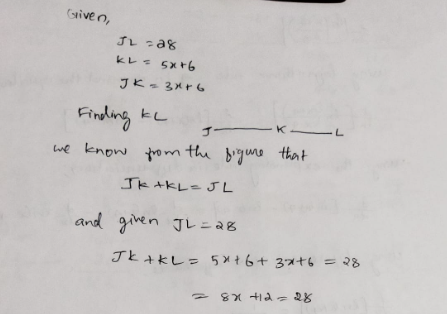 Given,
JL = 28
KL = 5x+6
JK = 3x+6
Finding KL
J K L
we know from the figure that
JK +KL = JL
and given JL = 28
JK +KL = 5x+6+ 3x+6 = 28
= 8x +12 = 28